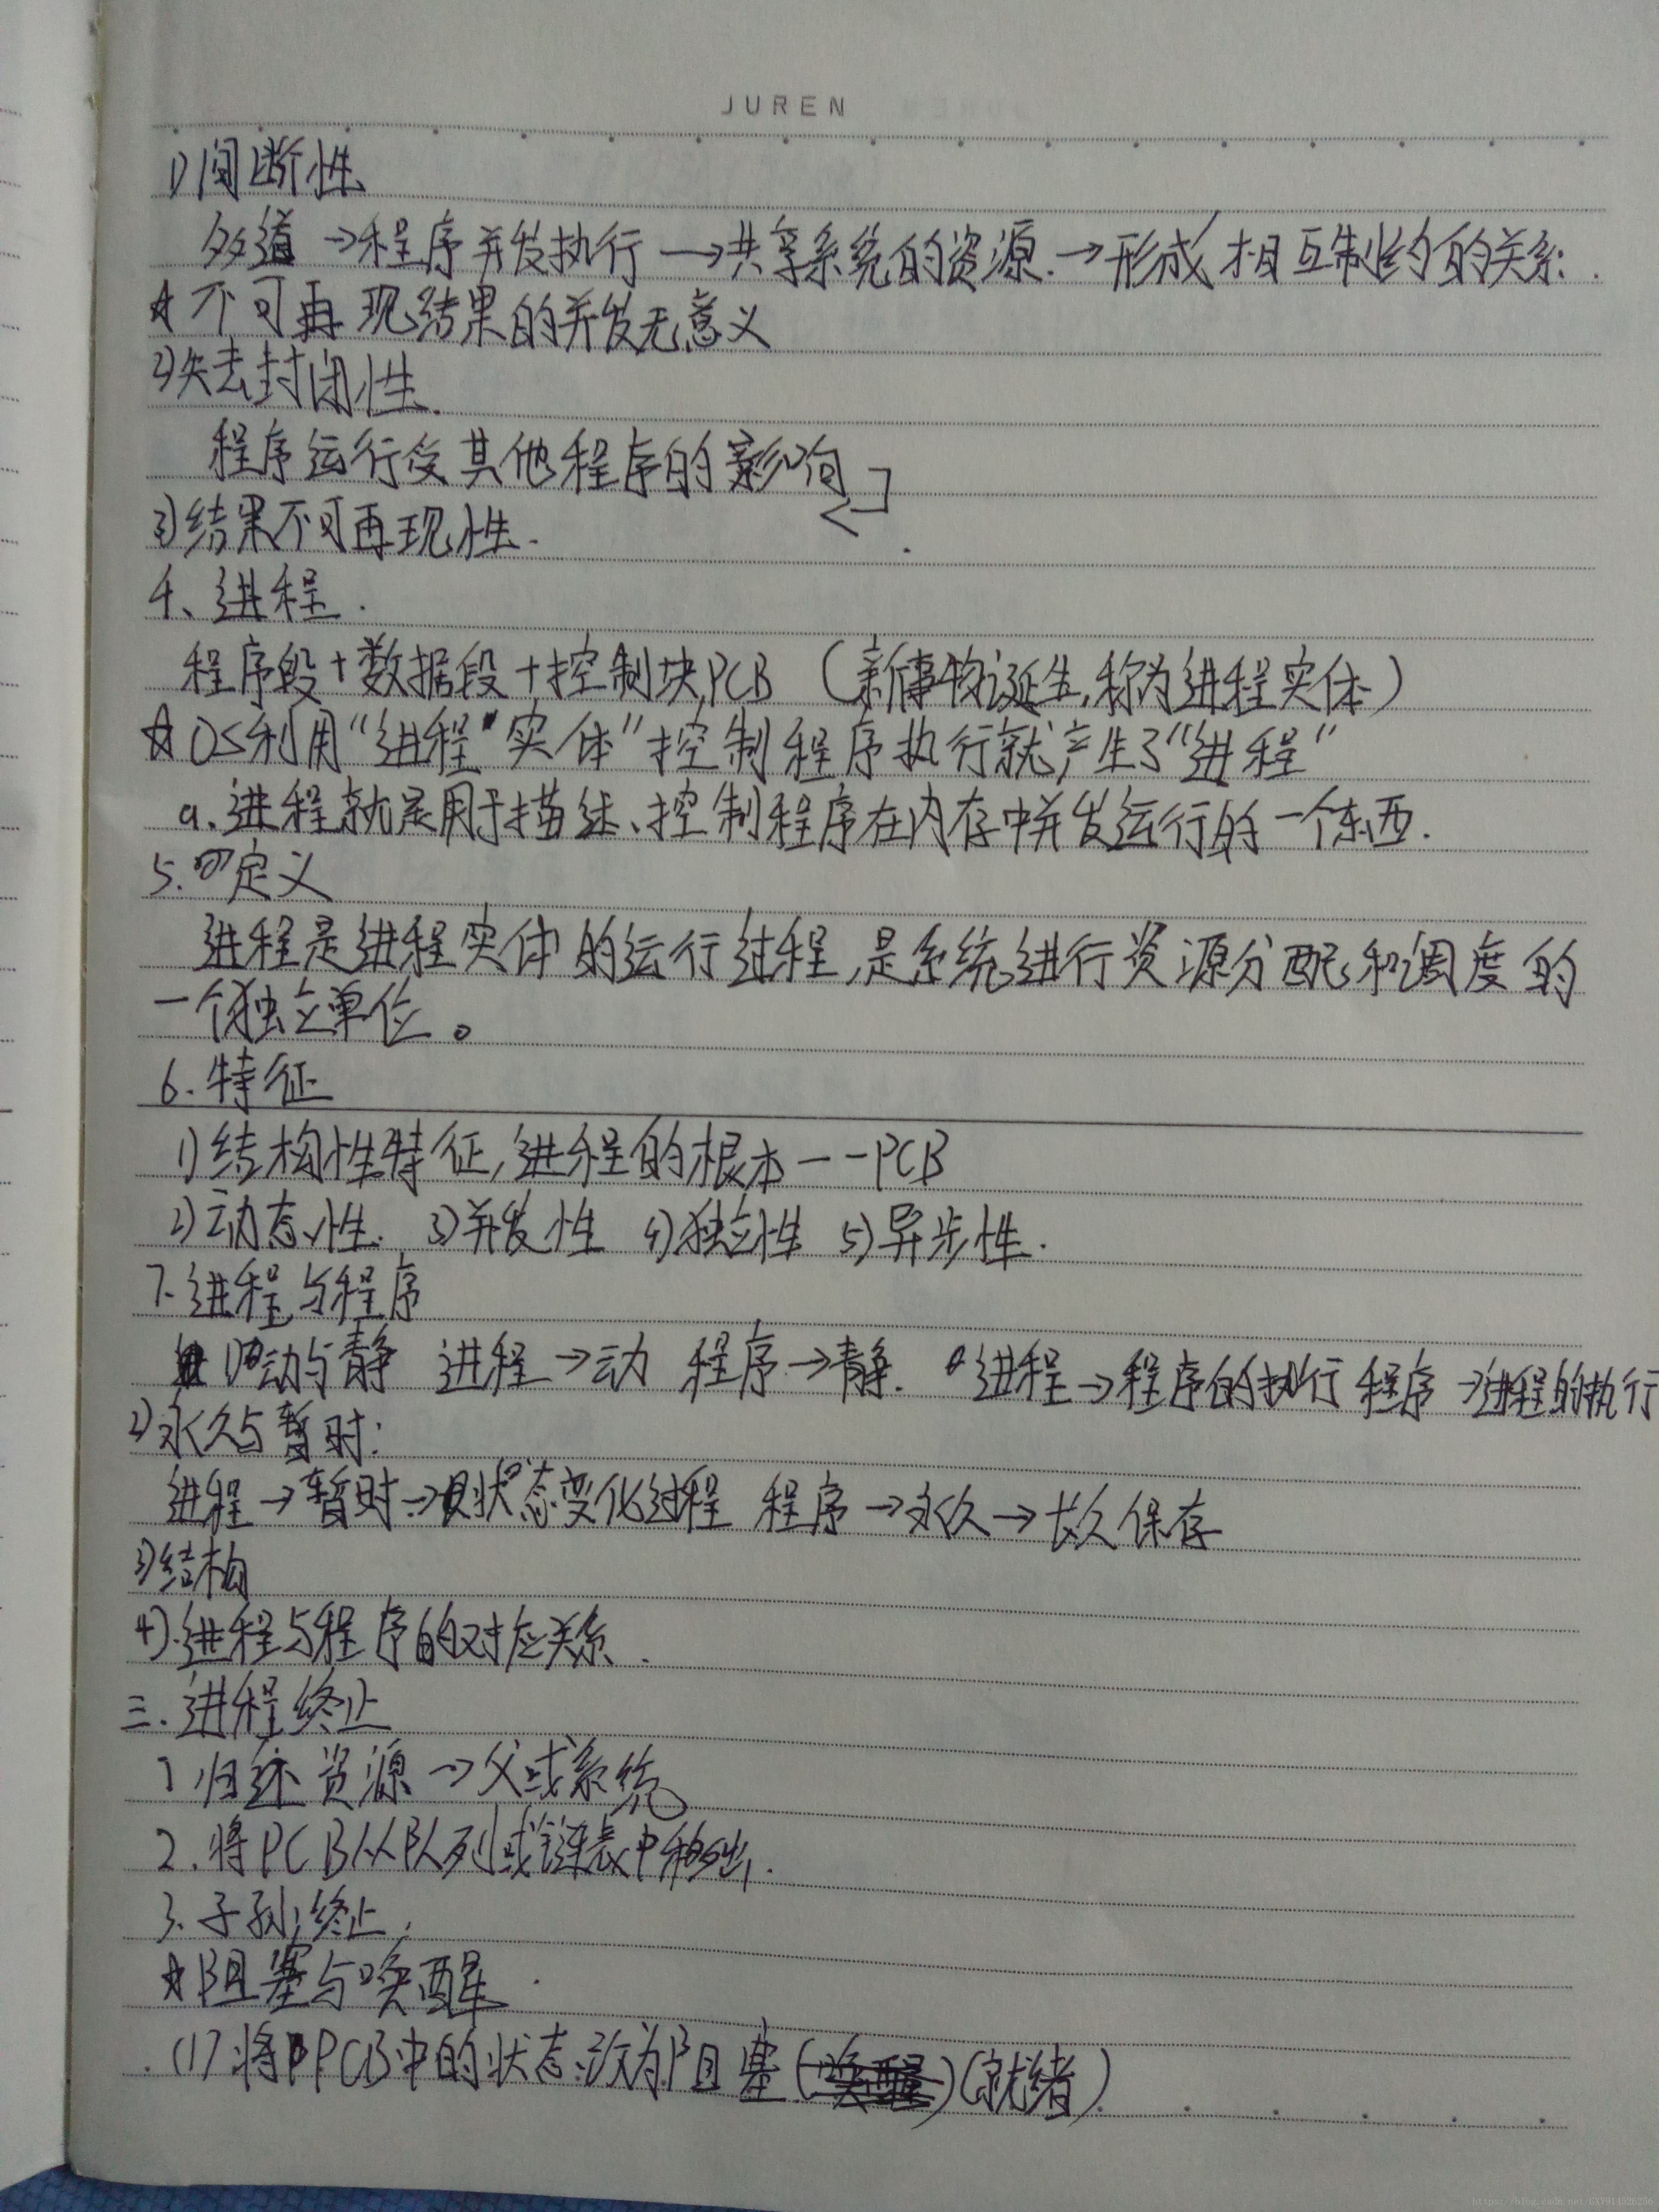 JUREN
1)间断性
多道→程序并发执行→共享系统的资源.→形成相互制约的关系.
☆不可再现结果的并发无意义
2)失去封闭性.
程序运行受其他程序的影响
3)结果不可再现性.
4、进程.
程序段+数据段+控制块PCB (新事物诞生,称为进程实体)
☆OS利用“进程"实体”控制程序执行就产生了“进程”
a.进程就是用于描述、控制程序在内存中并发运行的一个东西.
5.定义
进程是进程实体的运行过程,是系统进行资源分配和调度的
一个独立单位。
6.特征
1)结构性特征,进程的根本--PCB
2)动态性. 3)并发性 4)独立性 5)异步性.
7.进程与程序
1)动与静 进程→动 程序→静. 进程→程序的执行 程序→进程的执行
2)永久与暂时:
进程→暂时→状态变化过程 程序→永久→长久保存
3)结构
4).进程与程序的对应关系.
三.进程终止
1归还资源→父或系统
2.将PCB从队列或链表中移出.
3.子孙终止,
☆阻塞与唤醒
(1).将PCB中的状态改为阻塞(就绪).
https://blog.csdn.net/